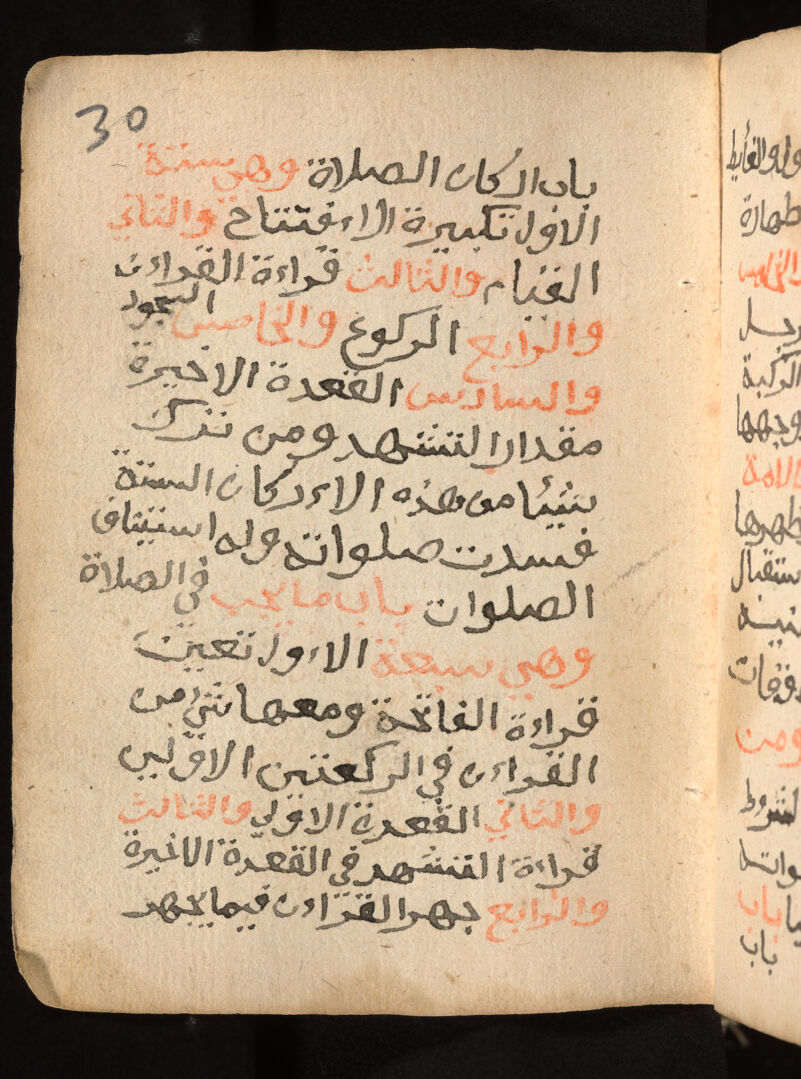 30
باب اركان الصلاة وهي ستة
الاول تكبيرة الاءفتتاح والثاني
القيام والثالث قراءة القراءن
والرابع الركوع والخامس السجود
والسادس القعدة الاخيرة
مقدار التشهد ومن ترك
شيئا من هذه الاءركان الستة
فسدت صلواته وله استيناف
الصلوات باب ما يجب في الصلاة
وهي سبعة الاءول تعيين
قراءة الفاتحة ومعها شئ من
القراءن في الركعتين الاوّلين
والثاني القعدة الاوّلي والثالث
قراءة التشهد في القعدة الاخيرة
والرابع جهر القراءن فيما يجهر
طهارة
الركبة
وجهها
باب
باب